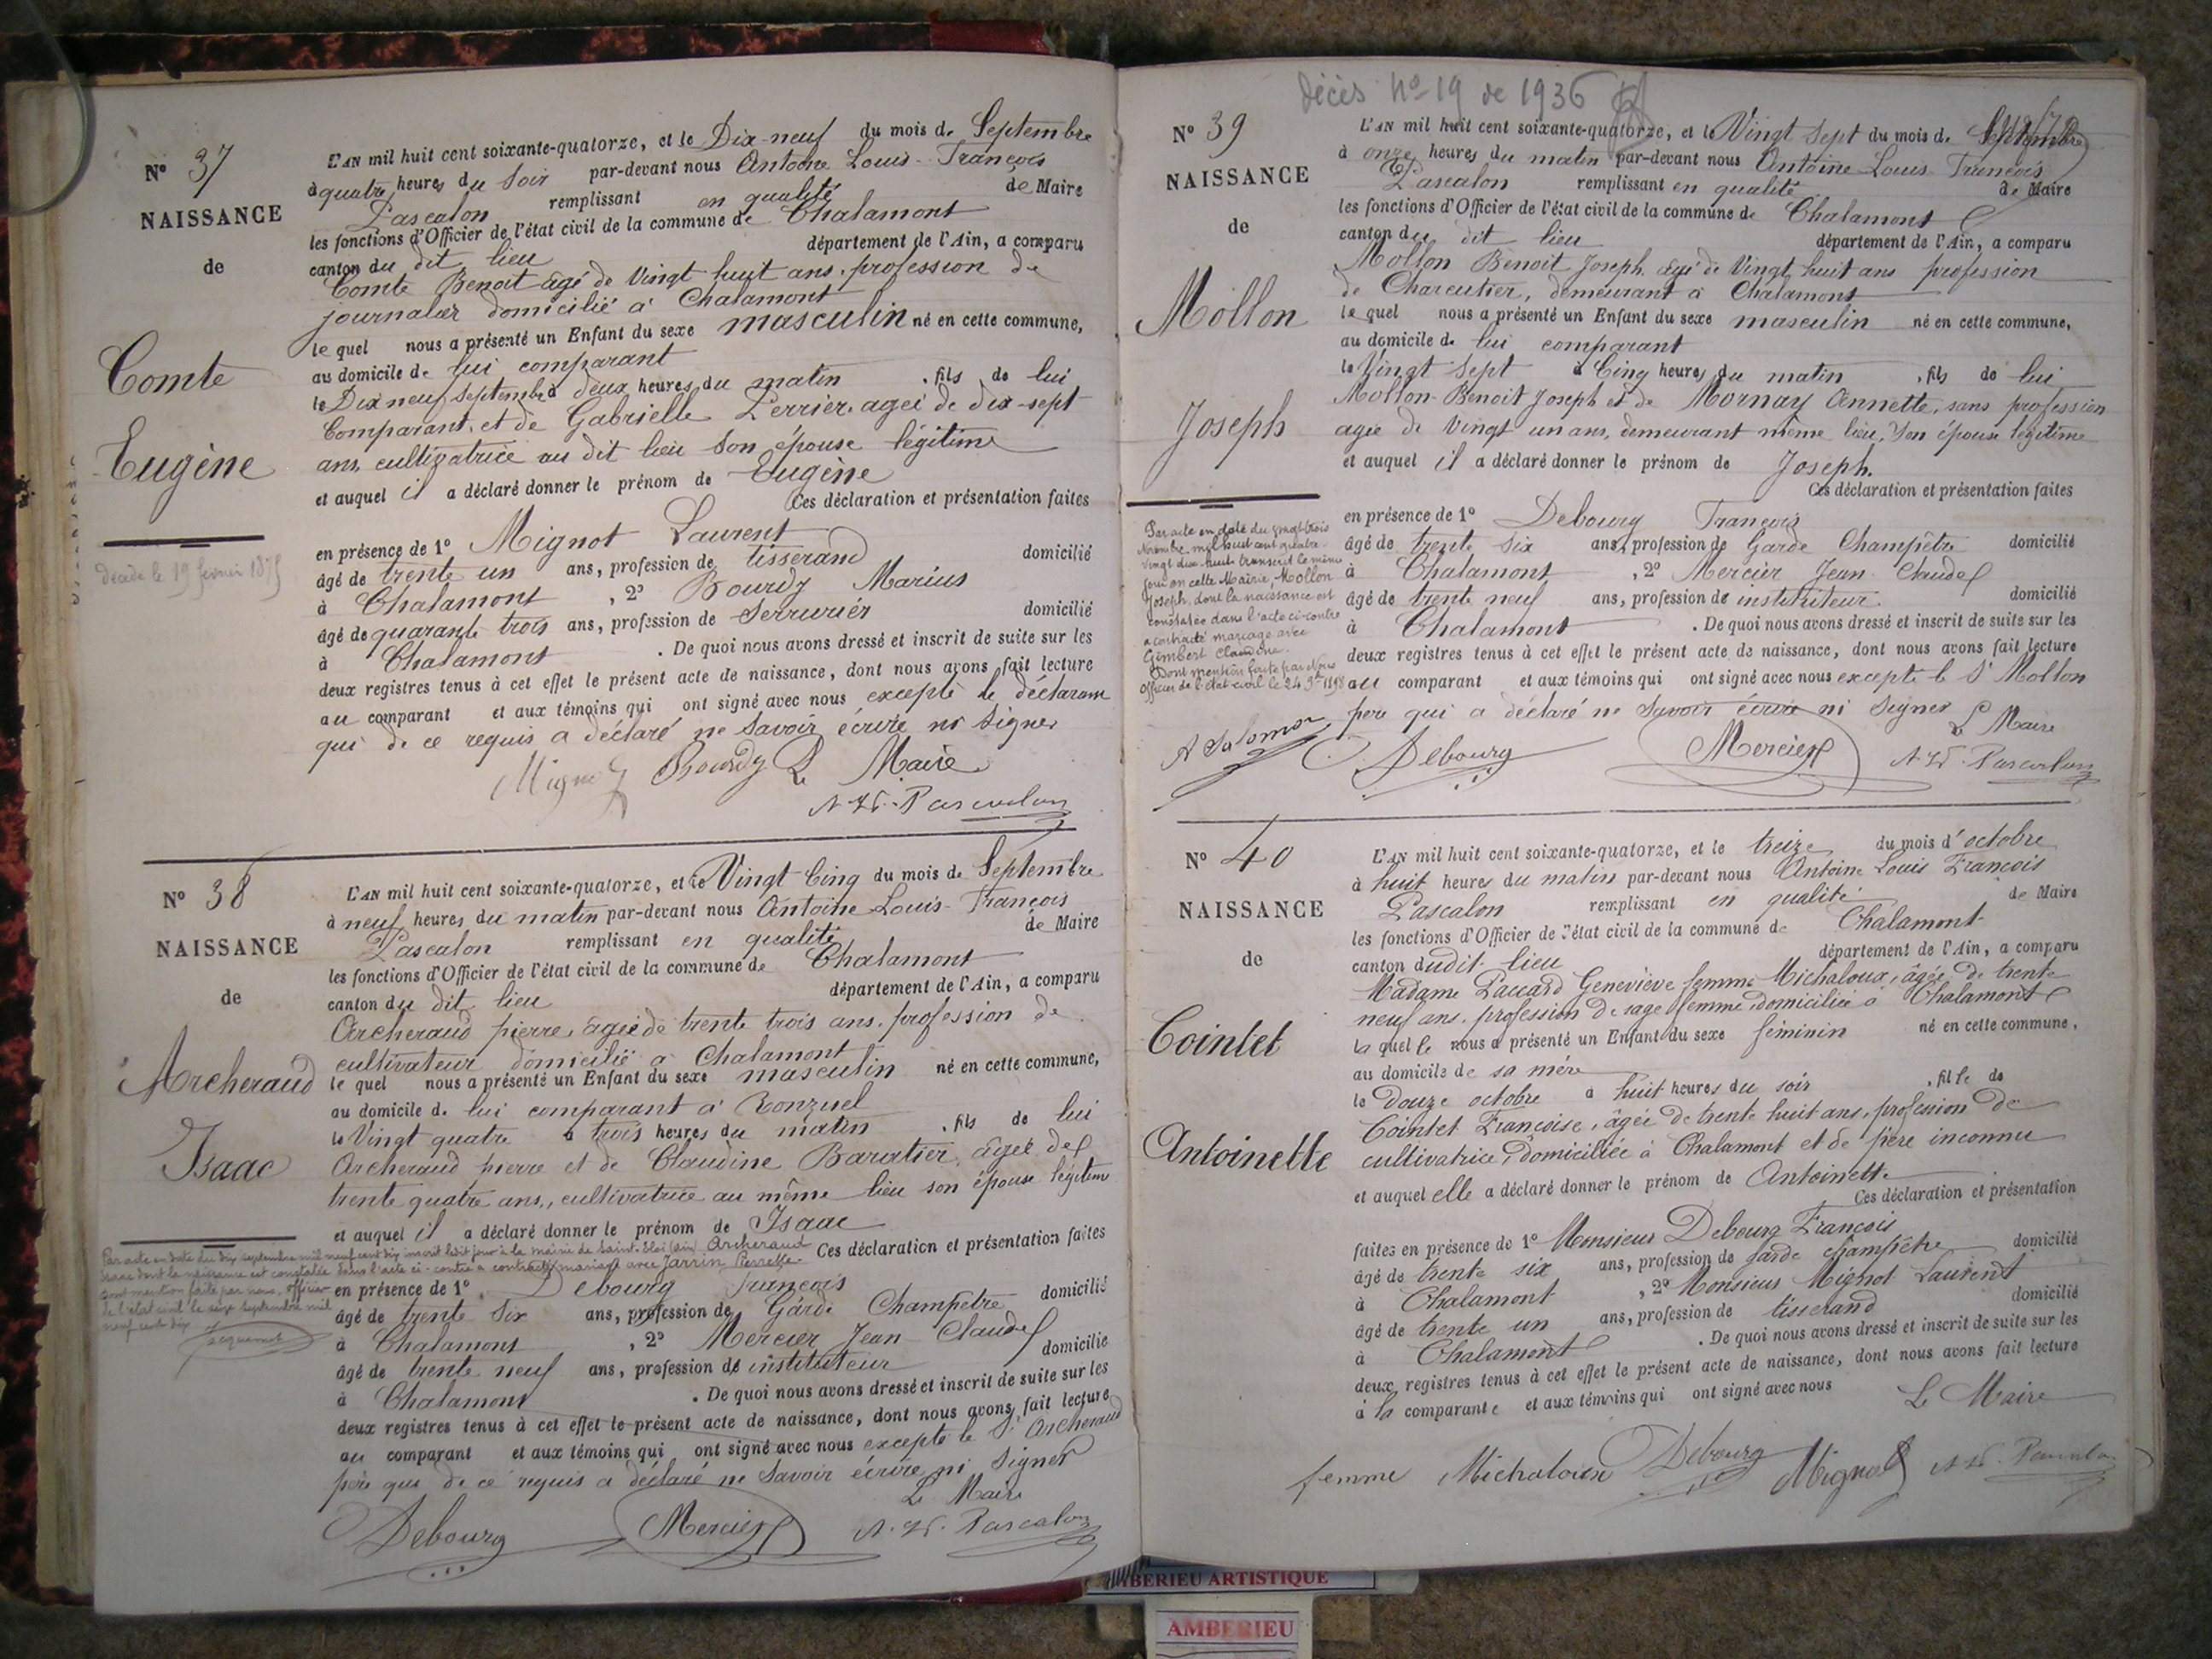 N° 37
NAISSANCE
de
Comte
Eugène
décédé le 19 février 1875
L'AN mil huit cent soixante-quatorze, et le Dix-neuf du mois de Septembre
à quatre heures du Soir par-devant nous Antoine Louis-François
Pascalon remplissant en qualité de Maire
les fonctions d'Officier de l'état civil de la commune de Chalamont
canton du dit lieu département de l'Ain, a comparu
Comte Benoit âgé de Vingt huit ans, profession de
journalier domicilié à Chalamont
le quel nous a présenté un Enfant du sexe masculin né en cette commune,
au domicile de lui comparant
le Dix neuf Septembre à deux heures du matin, fils de lui
Comparant et de Gabrielle Perrier agée de dix-sept
ans, cultivatrice au dit lieu son épouse légitime
et auquel il a déclaré donner le prénom de Eugène
Ces déclaration et présentation faites
en présence de 1° Mignot Laurent
âgé de trente un ans, profession de tisserand domicilié
à Chalamont, 2° Bourdy Marius
âgé de quarante trois ans, profession de Serrurier domicilié
à Chalamont. De quoi nous avons dressé et inscrit de suite sur les
deux registres tenus à cet effet le présent acte de naissance, dont nous avons fait lecture
au comparant et aux témoins qui ont signé avec nous excepté le déclarant
qui de ce requis a déclaré ne Savoir écrire ni Signer
Mignot Bourdy Le Maire
A. L. F. Pascalon
N° 38
NAISSANCE
de
Archeraud
Isaac
L'AN mil huit cent soixante-quatorze, et le Vingt Cinq du mois de Septembre
à neuf heures du matin par-devant nous Antoine Louis-François
Pascalon remplissant en qualité de Maire
les fonctions d'Officier de l'état civil de la commune de Chalamont
canton du dit lieu département de l'Ain, a comparu
Archeraud pierre, agée de trente trois ans, profession de
cultivateur domicilié à Chalamont
le quel nous a présenté un Enfant du sexe masculin né en cette commune,
au domicile de lui comparant à Ronzuel
le Vingt quatre à trois heures du matin, fils de lui
Archeraud pierre et de Claudine Baratier, agée de
trente quatre ans, cultivatrice au même lieu son épouse légitime
et auquel il a déclaré donner le prénom de Isaac
Ces déclaration et présentation faites
Par acte en date du dix septembre mil neuf cent dix inscrit ledit jour à la mairie de Saint-Eloi (Ain) Archeraud
Isaac dont la naissance est constatée dans l'acte ci-contre a contracté mariage avec Jarrin Pierrette
dont mention faite par nous, officier
de l'état civil le seize septembre mil
neuf cent dix
en présence de 1° Debourg François
âgé de trente Six ans, profession de Garde Champêtre domicilié
à Chalamont, 2° Mercier Jean Claude
âgé de trente neuf ans, profession de instituteur domicilié
à Chalamont. De quoi nous avons dressé et inscrit de suite sur les
deux registres tenus à cet effet le présent acte de naissance, dont nous avons fait lecture
au comparant et aux témoins qui ont signé avec nous excepté le Sr Archeraud
père qui de ce requis a déclaré ne Savoir écrire ni Signer
Le Maire
Debourg Mercier A. L. F. Pascalon
décès N° 19 de 1936
N° 39
NAISSANCE
de
Mollon
Joseph
L'AN mil huit cent soixante-quatorze, et le Vingt Sept du mois de Septembre
à onze heures du matin par-devant nous Antoine Louis François
Pascalon remplissant en qualité de Maire
les fonctions d'Officier de l'état civil de la commune de Chalamont
canton du dit lieu département de l'Ain, a comparu
Mollon Benoit Joseph agé de Vingt huit ans profession
de Charcutier, demeurant à Chalamont
le quel nous a présenté un Enfant du sexe masculin né en cette commune,
au domicile de lui comparant
le Vingt Sept à Cinq heures du matin, fils de lui
Mollon Benoit Joseph et de Mornay Annette, sans profession
agée de Vingt un ans, demeurant même lieu, Son épouse légitime
et auquel il a déclaré donner le prénom de Joseph.
Ces déclaration et présentation faites
Par acte en date du vingt trois
Novembre mil huit cent quatre
vingt dix-huit transcrit le même
jour en cette Mairie, Mollon
Joseph, dont la naissance est
constatée dans l'acte ci-contre
a contracté mariage avec
Gimbert Claudine.
Dont mention faite par Nous
Officier de l'état civil le 24 9bre 1898
A Salomon
en présence de 1° Debourg François
âgé de trente Six ans, profession de Garde Champêtre domicilié
à Chalamont, 2° Mercier Jean Claude
âgé de trente neuf ans, profession de instituteur domicilié
à Chalamont. De quoi nous avons dressé et inscrit de suite sur les
deux registres tenus à cet effet le présent acte de naissance, dont nous avons fait lecture
au comparant et aux témoins qui ont signé avec nous excepté le Sr Mollon
père qui a déclaré ne Savoir écrire ni Signer
Le Maire
Debourg Mercier A. L. F. Pascalon
N° 40
NAISSANCE
de
Cointet
Antoinette
L'AN mil huit cent soixante-quatorze, et le treize du mois d'octobre
à huit heures du matin par-devant nous Antoine Louis François
Pascalon remplissant en qualité de Maire
les fonctions d'Officier de l'état civil de la commune de Chalamont
canton dudit lieu département de l'Ain, a comparu
Madame Paccard Geneviève femme Michaloux, âgée de trente
neuf ans, profession de sage femme, domiciliée à Chalamont
la quelle nous a présenté un Enfant du sexe féminin né en cette commune,
au domicile de sa mère
le douze octobre à huit heures du soir, fille de
Cointet Françoise, âgée de trente huit ans, profession de
cultivatrice, domiciliée à Chalamont et de père inconnu
et auquel elle a déclaré donner le prénom de Antoinette
Ces déclaration et présentation
faites en présence de 1° Monsieur Debourg François
âgé de trente six ans, profession de garde champêtre domicilié
à Chalamont, 2° Monsieur Mignot Laurent
âgé de trente un ans, profession de tisserand domicilié
à Chalamont. De quoi nous avons dressé et inscrit de suite sur les
deux registres tenus à cet effet le présent acte de naissance, dont nous avons fait lecture
à la comparante et aux témoins qui ont signé avec nous
Le Maire
femme Michaloux Debourg Mignot A. L. F. Pascalon
AMBERIEU ARTISTIQUE
AMBERIEU